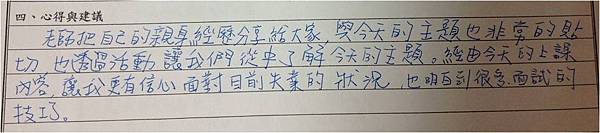 四、心得與建議
老師把自己的親身經歷分享給大家,與今天的主題也非常的貼
切,也透過活動,讓我們從中了解今天的主題。經由今天的上課
內容,讓我更有信心面對目前失業的狀況,也明白到很多面試的
技巧。